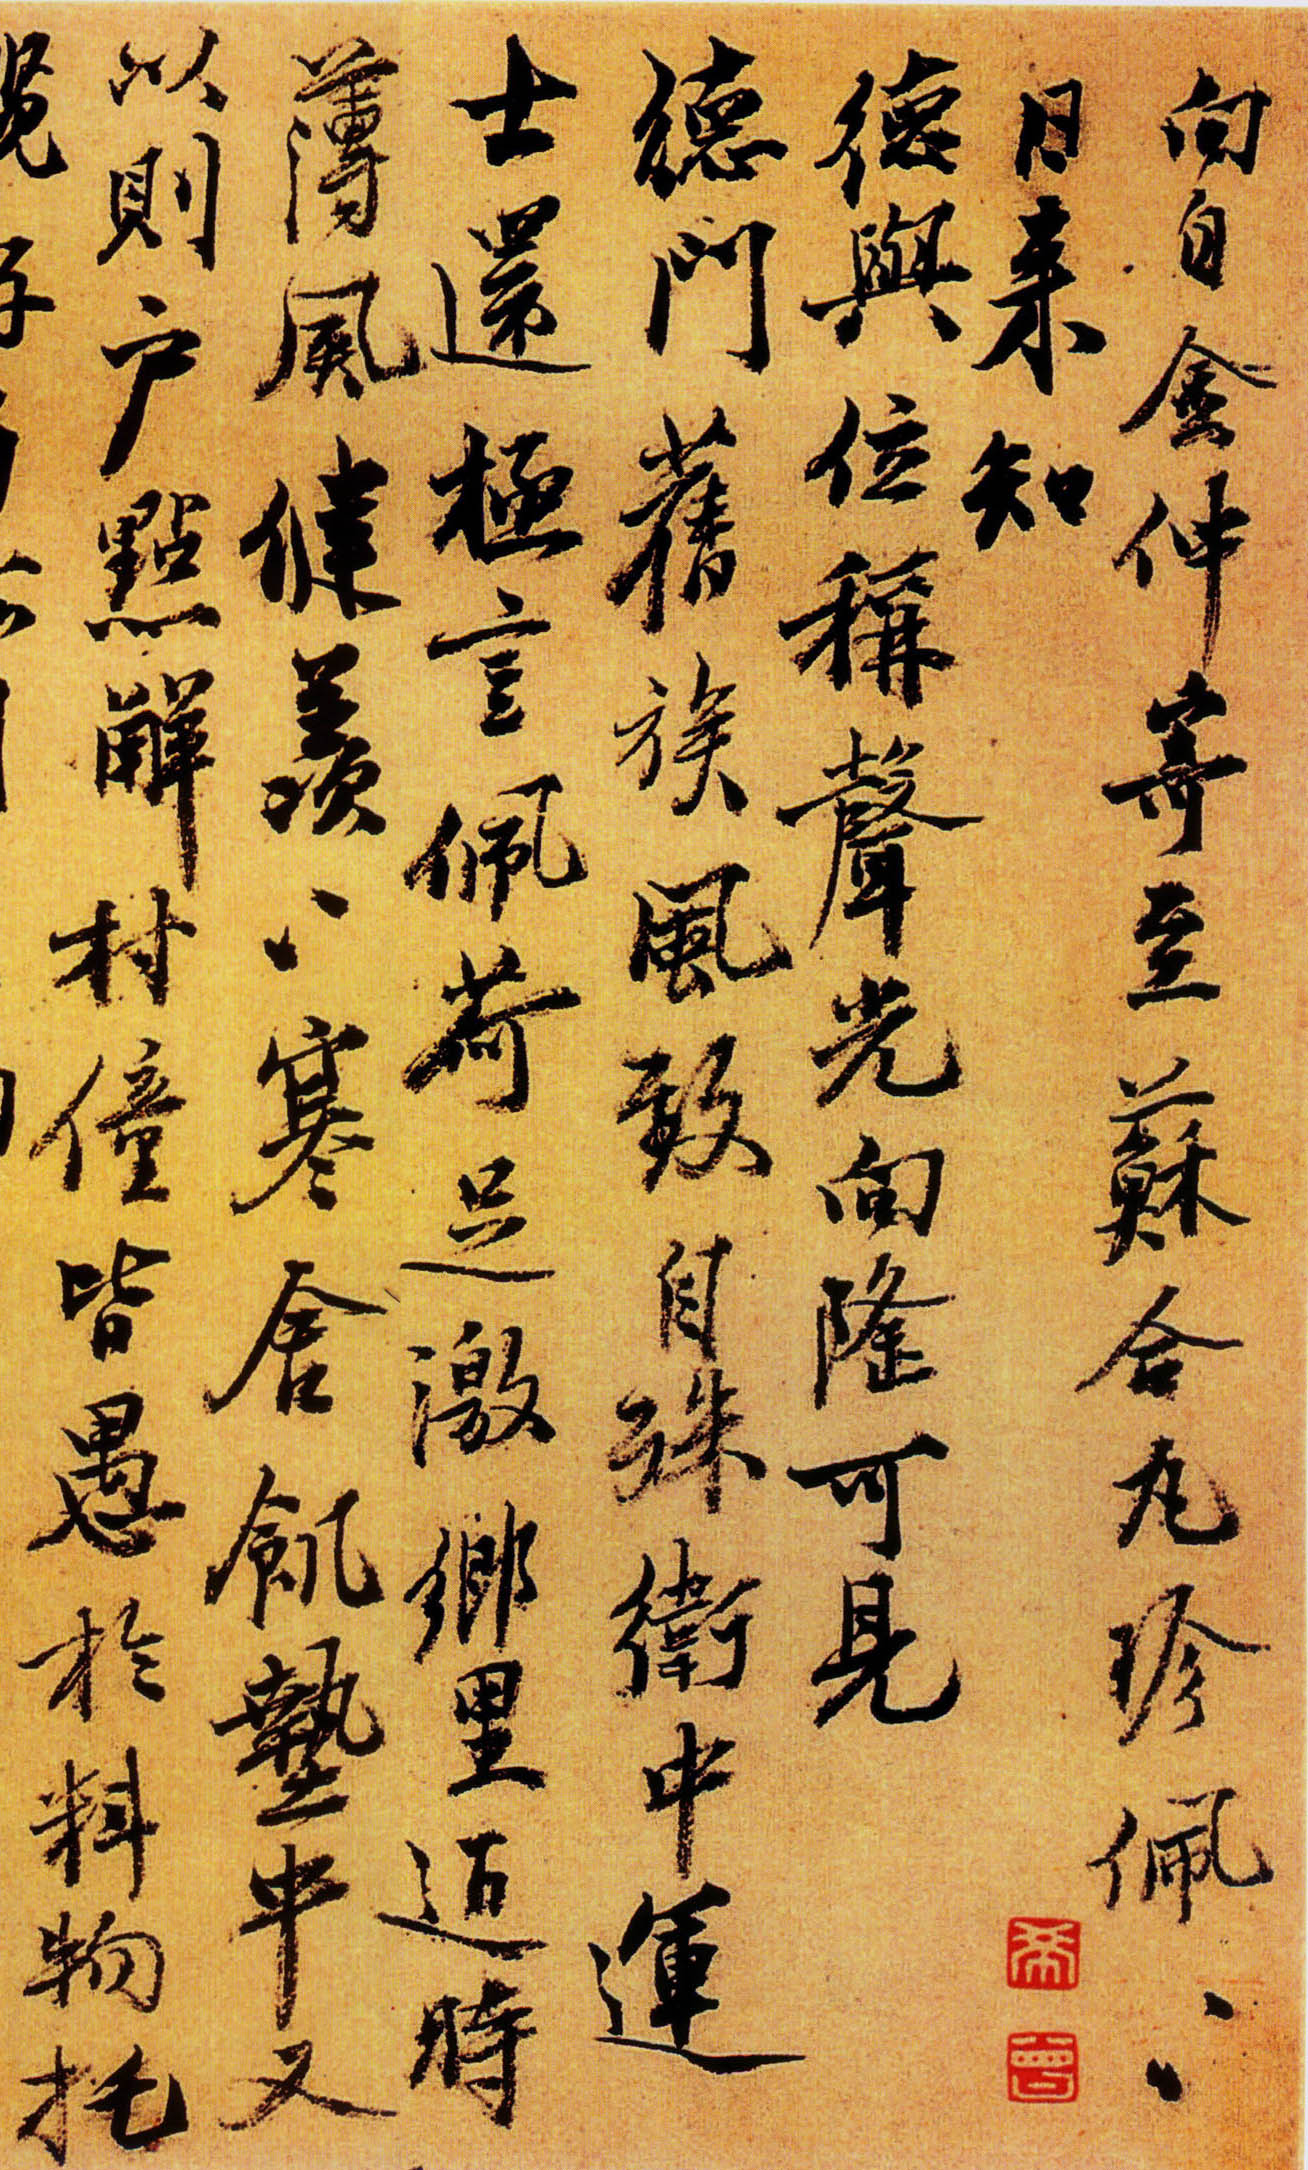 向自金仲寄至蘇合丸珍佩〻
日来知
德與位稱聲光向隆可見
德門舊族風致自殊衛中運
士還極言佩荷足激鄉里近時
薄風健羨〻寒舍飢墊中又
以則户點解村僮皆愚於料物托